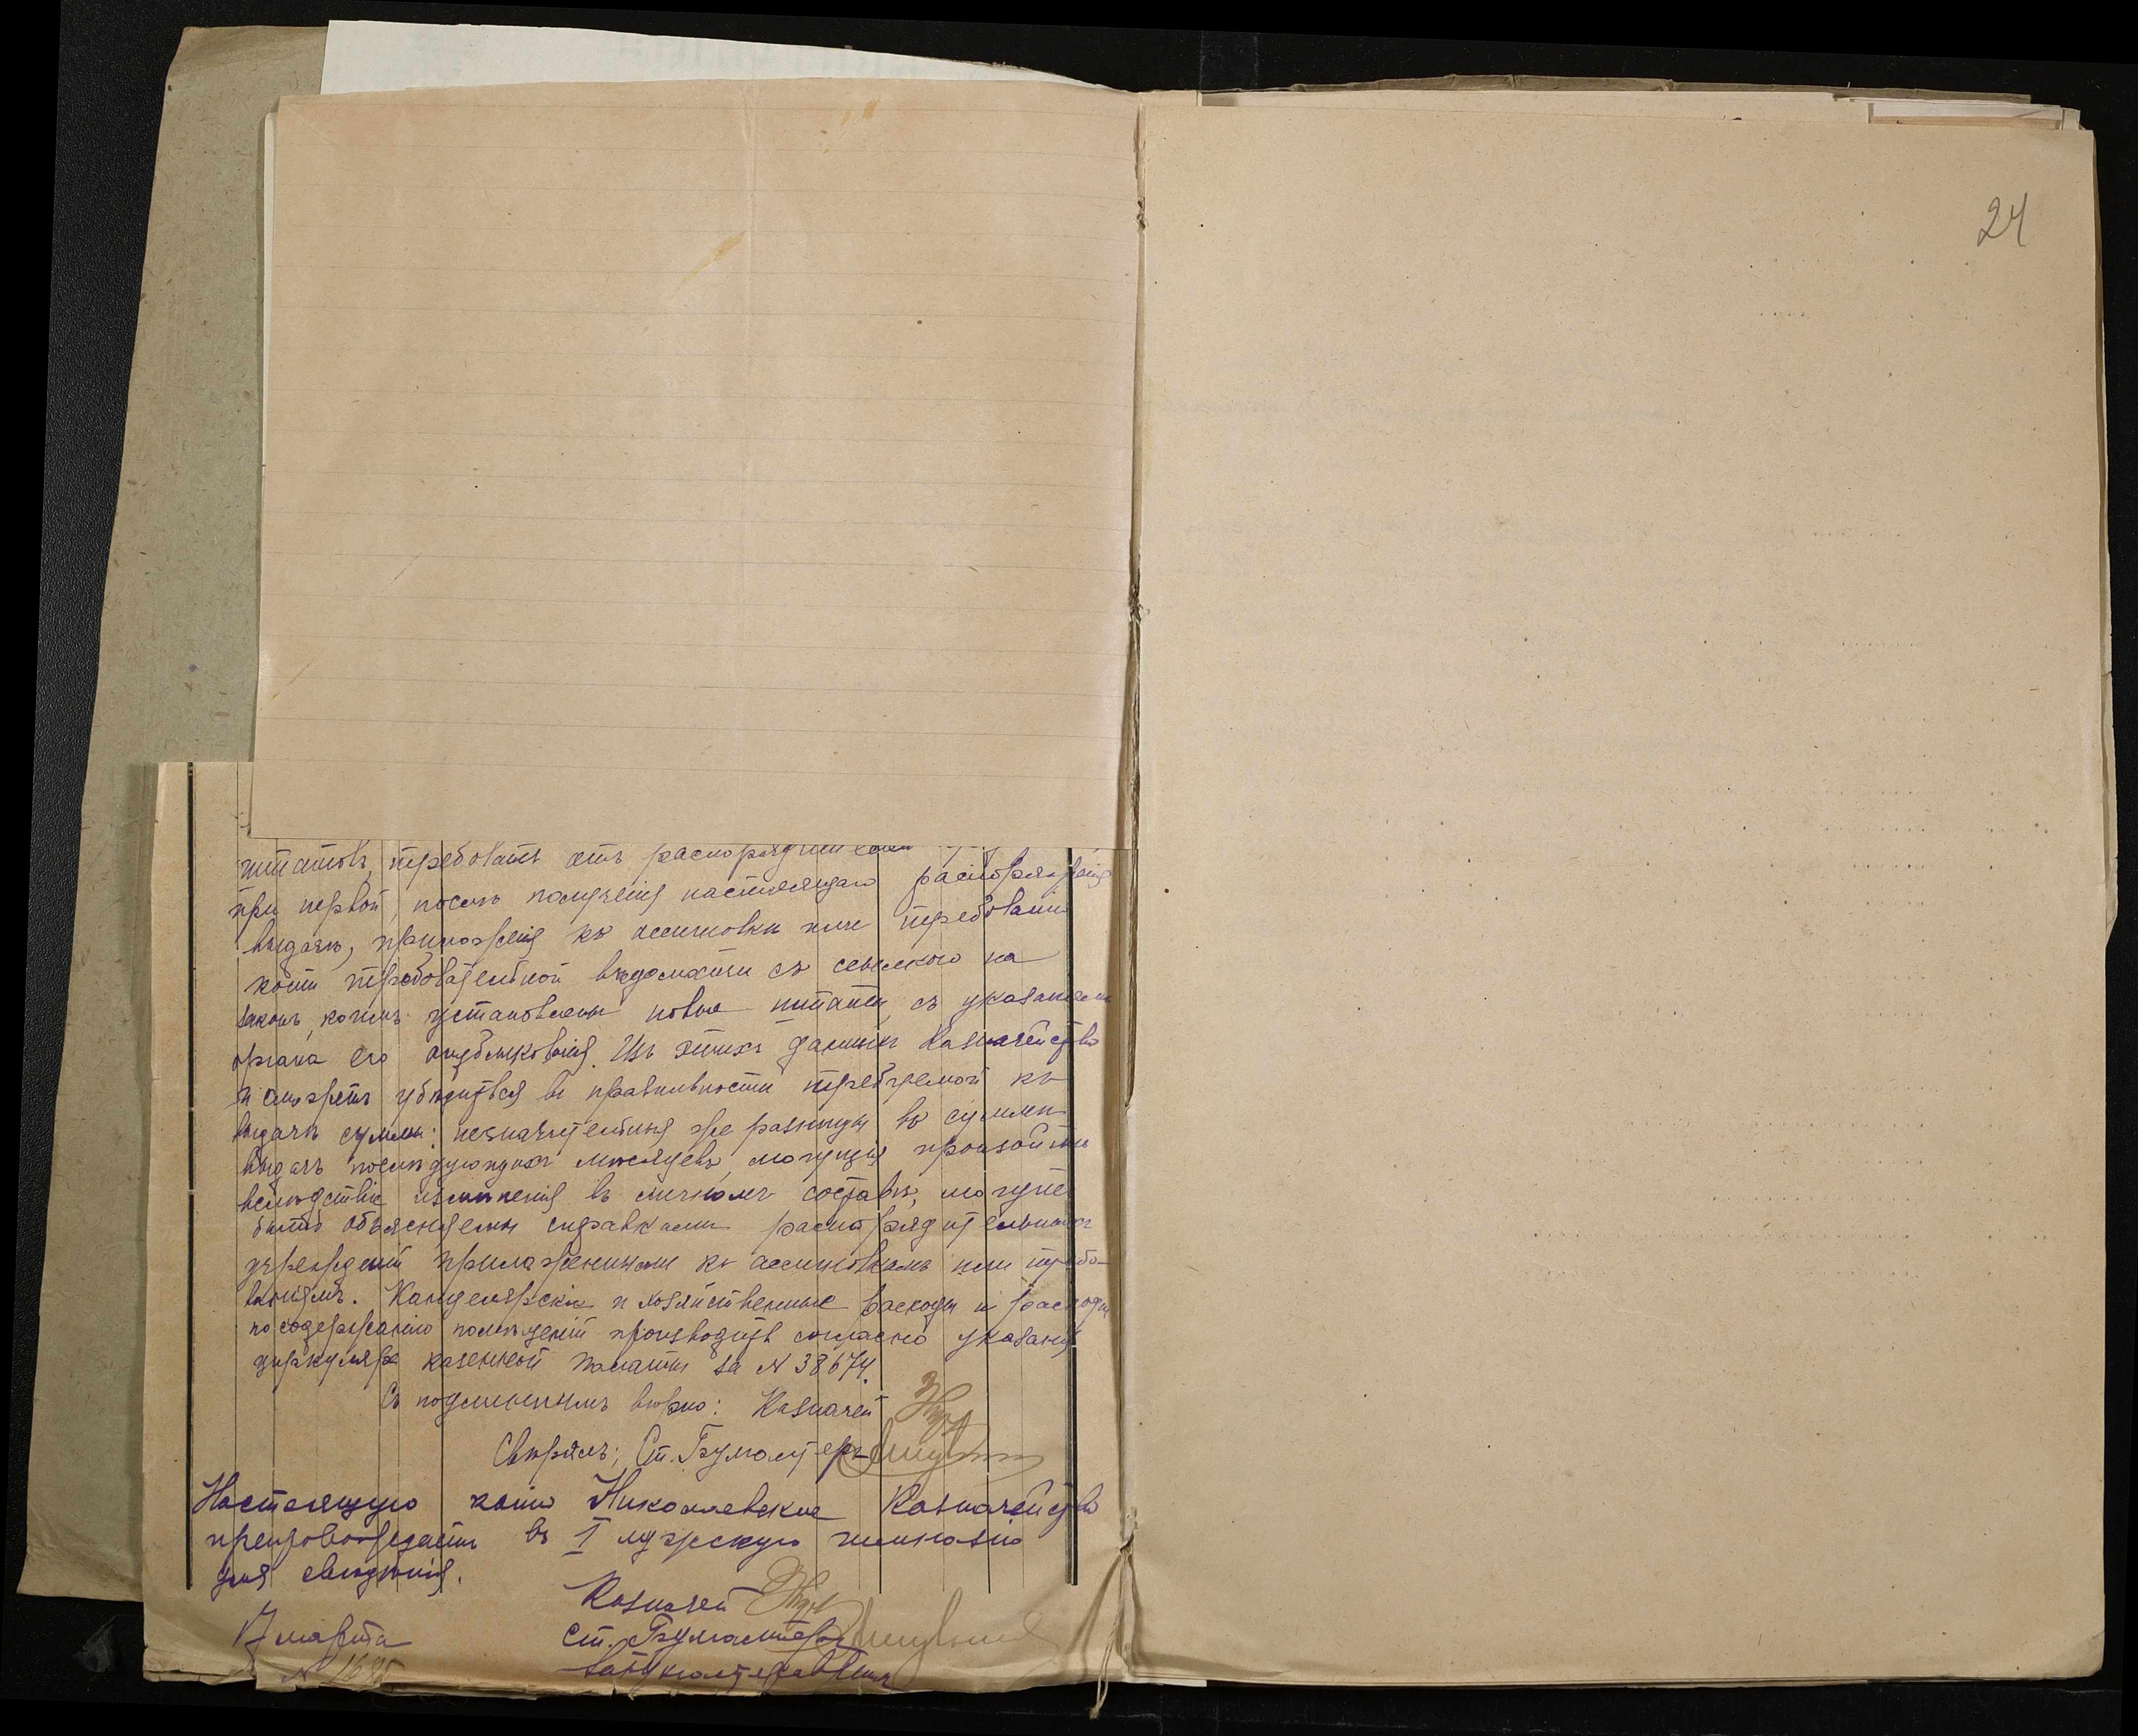 24
штатовъ, требовать отъ
при первой, послѣ полученія настоящаго распоряженія
выдачѣ, приложенія къ ассигновки или требованію
копіи требовательной вѣдомости съ ссылкою на
законъ, коимъ установлены новые штаты, съ указаніемъ
органа его опубликованія. Изъ этихъ данныхъ Казначейство
и можетъ убѣдиться въ правильности требуемой къ
выдачѣ суммы; незначительныя же разницы въ суммѣ
выдачъ послѣдующихъ мѣсяцевъ, могущія произойти
вслѣдствіе измѣненія въ личномъ составѣ, могутъ
быть объясняемы справками распорядительныхъ
учрежденій приложенными къ ассигновкамъ или требо-
ваніямъ. Канцелярскіе и хозяйственные расходы и расходы
по содержанію помѣщеній производить согласно указанія
циркуляра казенной палаты за № 38674.
Съ подлиннымъ вѣрно: Казначей
Свѣрялъ: Ст. Бухгалтеръ
Настоящую копію Николаевское Казначейство
препровождаетъ въ I мужскую гимназію
для свѣдѣнія.
Казначей
17 марта Ст. Бухгалтеръ
№ 1685